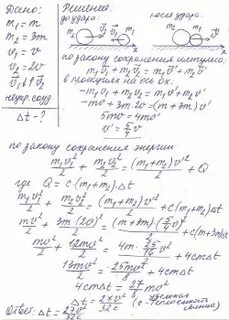 Дано: Решение:
m₁ = m до удара: после удара:
m₂ = 3m
v₁ = v
v₂ = 2v
v⃗₁↑↓v⃗₂ по закону сохранения импульса:
m₁v⃗₁ + m₂v⃗₂ = m₁v⃗' + m₂v⃗'
неупр. соуд. в проекциях на ось ох:
-m₁v₁ + m₂v₂ = m₁v' + m₂v'
Δt - ? -mv + 3m·2v = (m+3m)v'
5mv = 4mv'
v' = 5/4 v
по закону сохранения энергии
m₁v₁²/2 + m₂v₂²/2 = (m₁+m₂)v'²/2 + Q
где Q = c(m₁+m₂)·Δt
m₁v₁²/2 + m₂v₂²/2 = (m₁+m₂)v'²/2 + c(m₁+m₂)Δt
mv²/2 + 3m·(2v)²/2 = (m+3m)·(5/4 v)²/2 + c(m+3m)Δt
mv²/2 + 12mv²/2 = 4m·25/16 v²/2 + 4cmΔt
13mv²/2 = 25mv²/8 + 4cmΔt
4cmΔt = 27/8 mv²
Δt = 27v²/32c (c - удельная теплоёмкость
Ответ: Δt = 27v²/32c